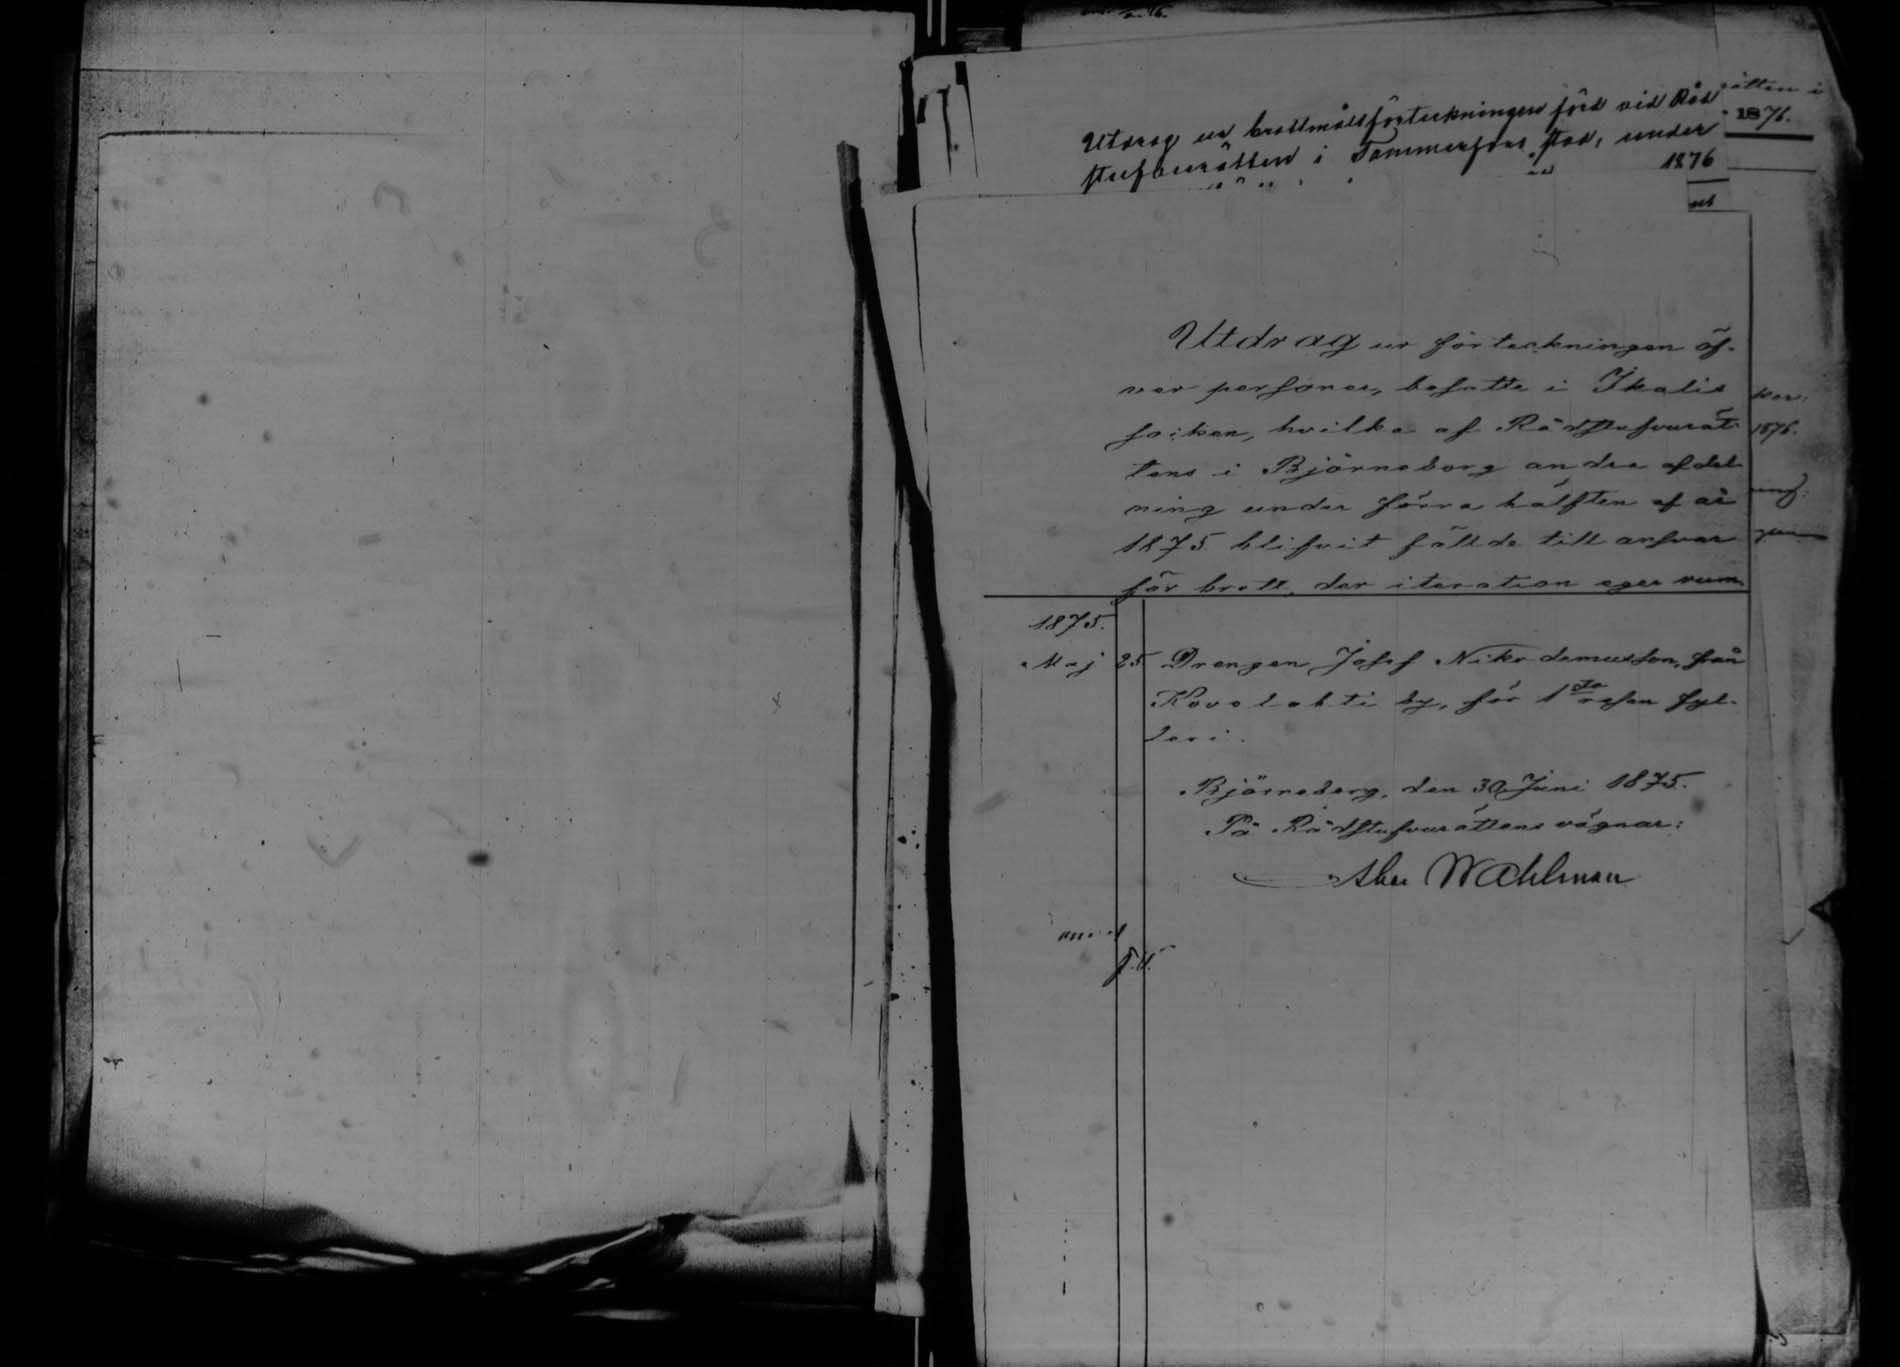 Utdrag ur brottmålsförteckningen förd vid Råd
stufvurätten i Tammerfors stad, under
1876
ätten i
1876.
Utdrag ur förteckningen öf-
ver personer, bosatte i Ikalis
socken, hvilka af Rådstufvurät-
tens i Björneborg andra afdel-
ning under förra hälften af år
1875 blifvit fällde till ansvar
för brott, der iteration eger rum.
1876.
1875.
Maj 25 Drengen Josef Nikodemusson, från
Kovelahti by, för 1sta resan fyl-
leri.
Björneborg, den 30 Juni 1875.
På Rådstufvurättens vägnar:
Wahlman